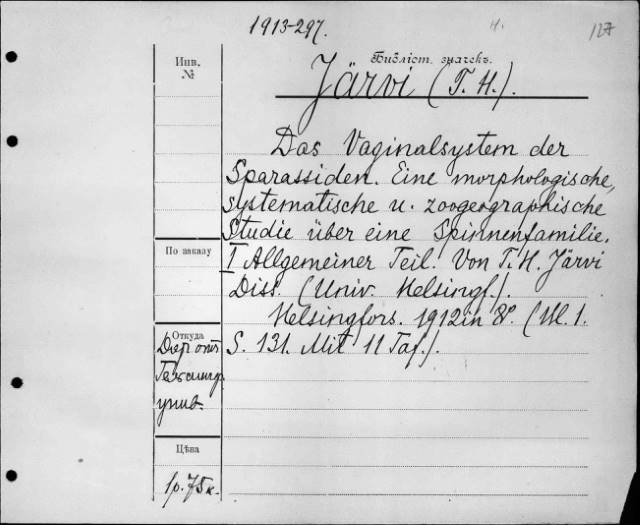 1913-297.
н.
127
Библіот. значекъ.
Järvi (T. H.).
Инв.
№
Das Vaginalsystem der
Sparassiden. Eine morphologische,
systematische u. zoogeographische
Studie über eine Spinnenfamilie.
По заказу
I Allgemeiner Teil. Von T. H. Järvi
Diss. (Univ. Helsingf.).
Helsingfors. 1912 in 8°. (Bl. 1.
S. 131. Mit 11 Taf.).
Откуда
Дар от
Гельсингф.
унив.
Цѣна
1р. 75к.